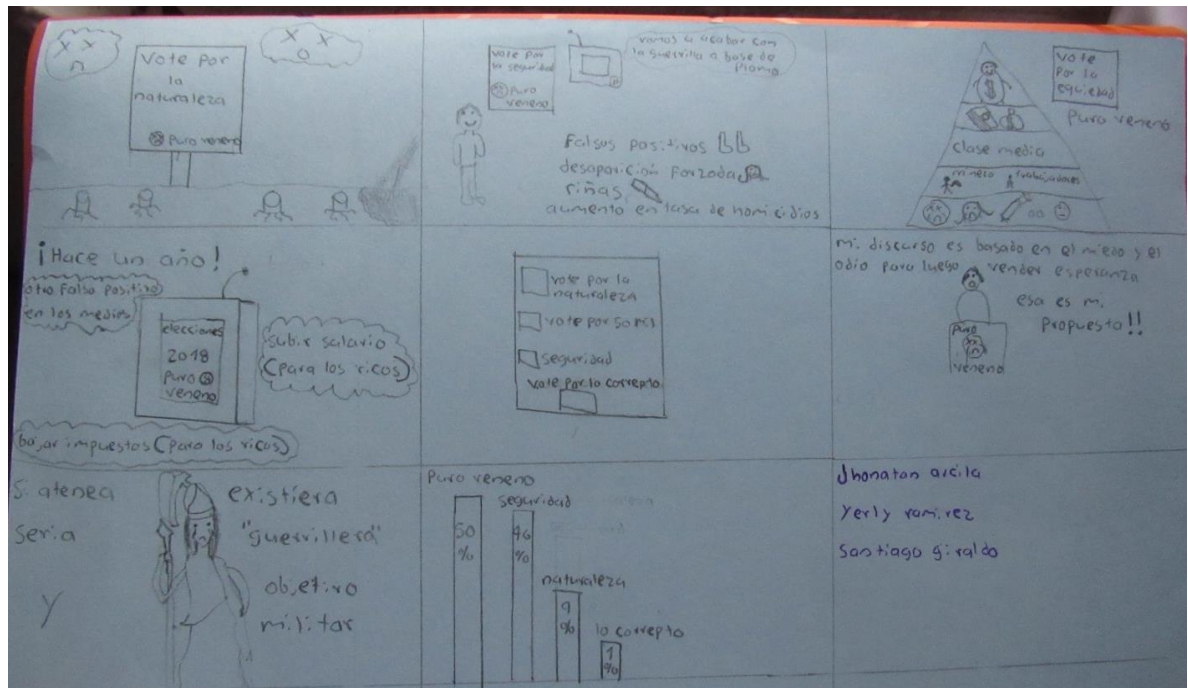 Vote Por
la
naturaleza
Puro veneno
vote por
la seguridad
Puro
veneno
vamos a acabar con
la guerrilla a base de
Plomo
Falsos positivos
desaparición Forzada
riñas
aumento en tasa de homicidios
vote
Por la
equiedad
Puro veneno
clase media
minero trabajadores
¡Hace un año!
otro Falso positivo
en los medios
elecciones
2018
Puro
veneno
subir salario
(para los ricos)
bajar impuestos (para los ricos)
vote por la
naturaleza
vote por
seguridad
vote por lo correpto
mi discurso es basado en el miedo y el
odio para luego vender esperanza
esa es mi
Propuesta!!
Puro
veneno
Si atenea existiera
seria "guerrillera"
y objetivo
militar
Puro veneno
seguridad
50
%
46
%
naturaleza
9
%
lo correpto
1
%
Jhonatan arcila
Yerly ramirez
Santiago giraldo